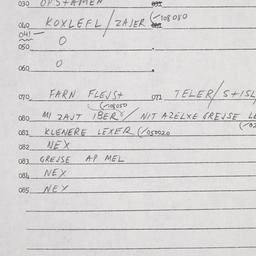 030 OPSTAMEN 031
040 KOXLEFL / ZAJER (✓108080
041 —
050 O
060 O
070 FARN FLEJST 071 TELER / S+ISL
(✓08050
080 MI ZAJT IBER / NIT AZELXE GREJSE LE
081 KLENERE LEXER (✓050020
082 NEX
083 GREJSE AP MEL
084 NEX
085 NEX